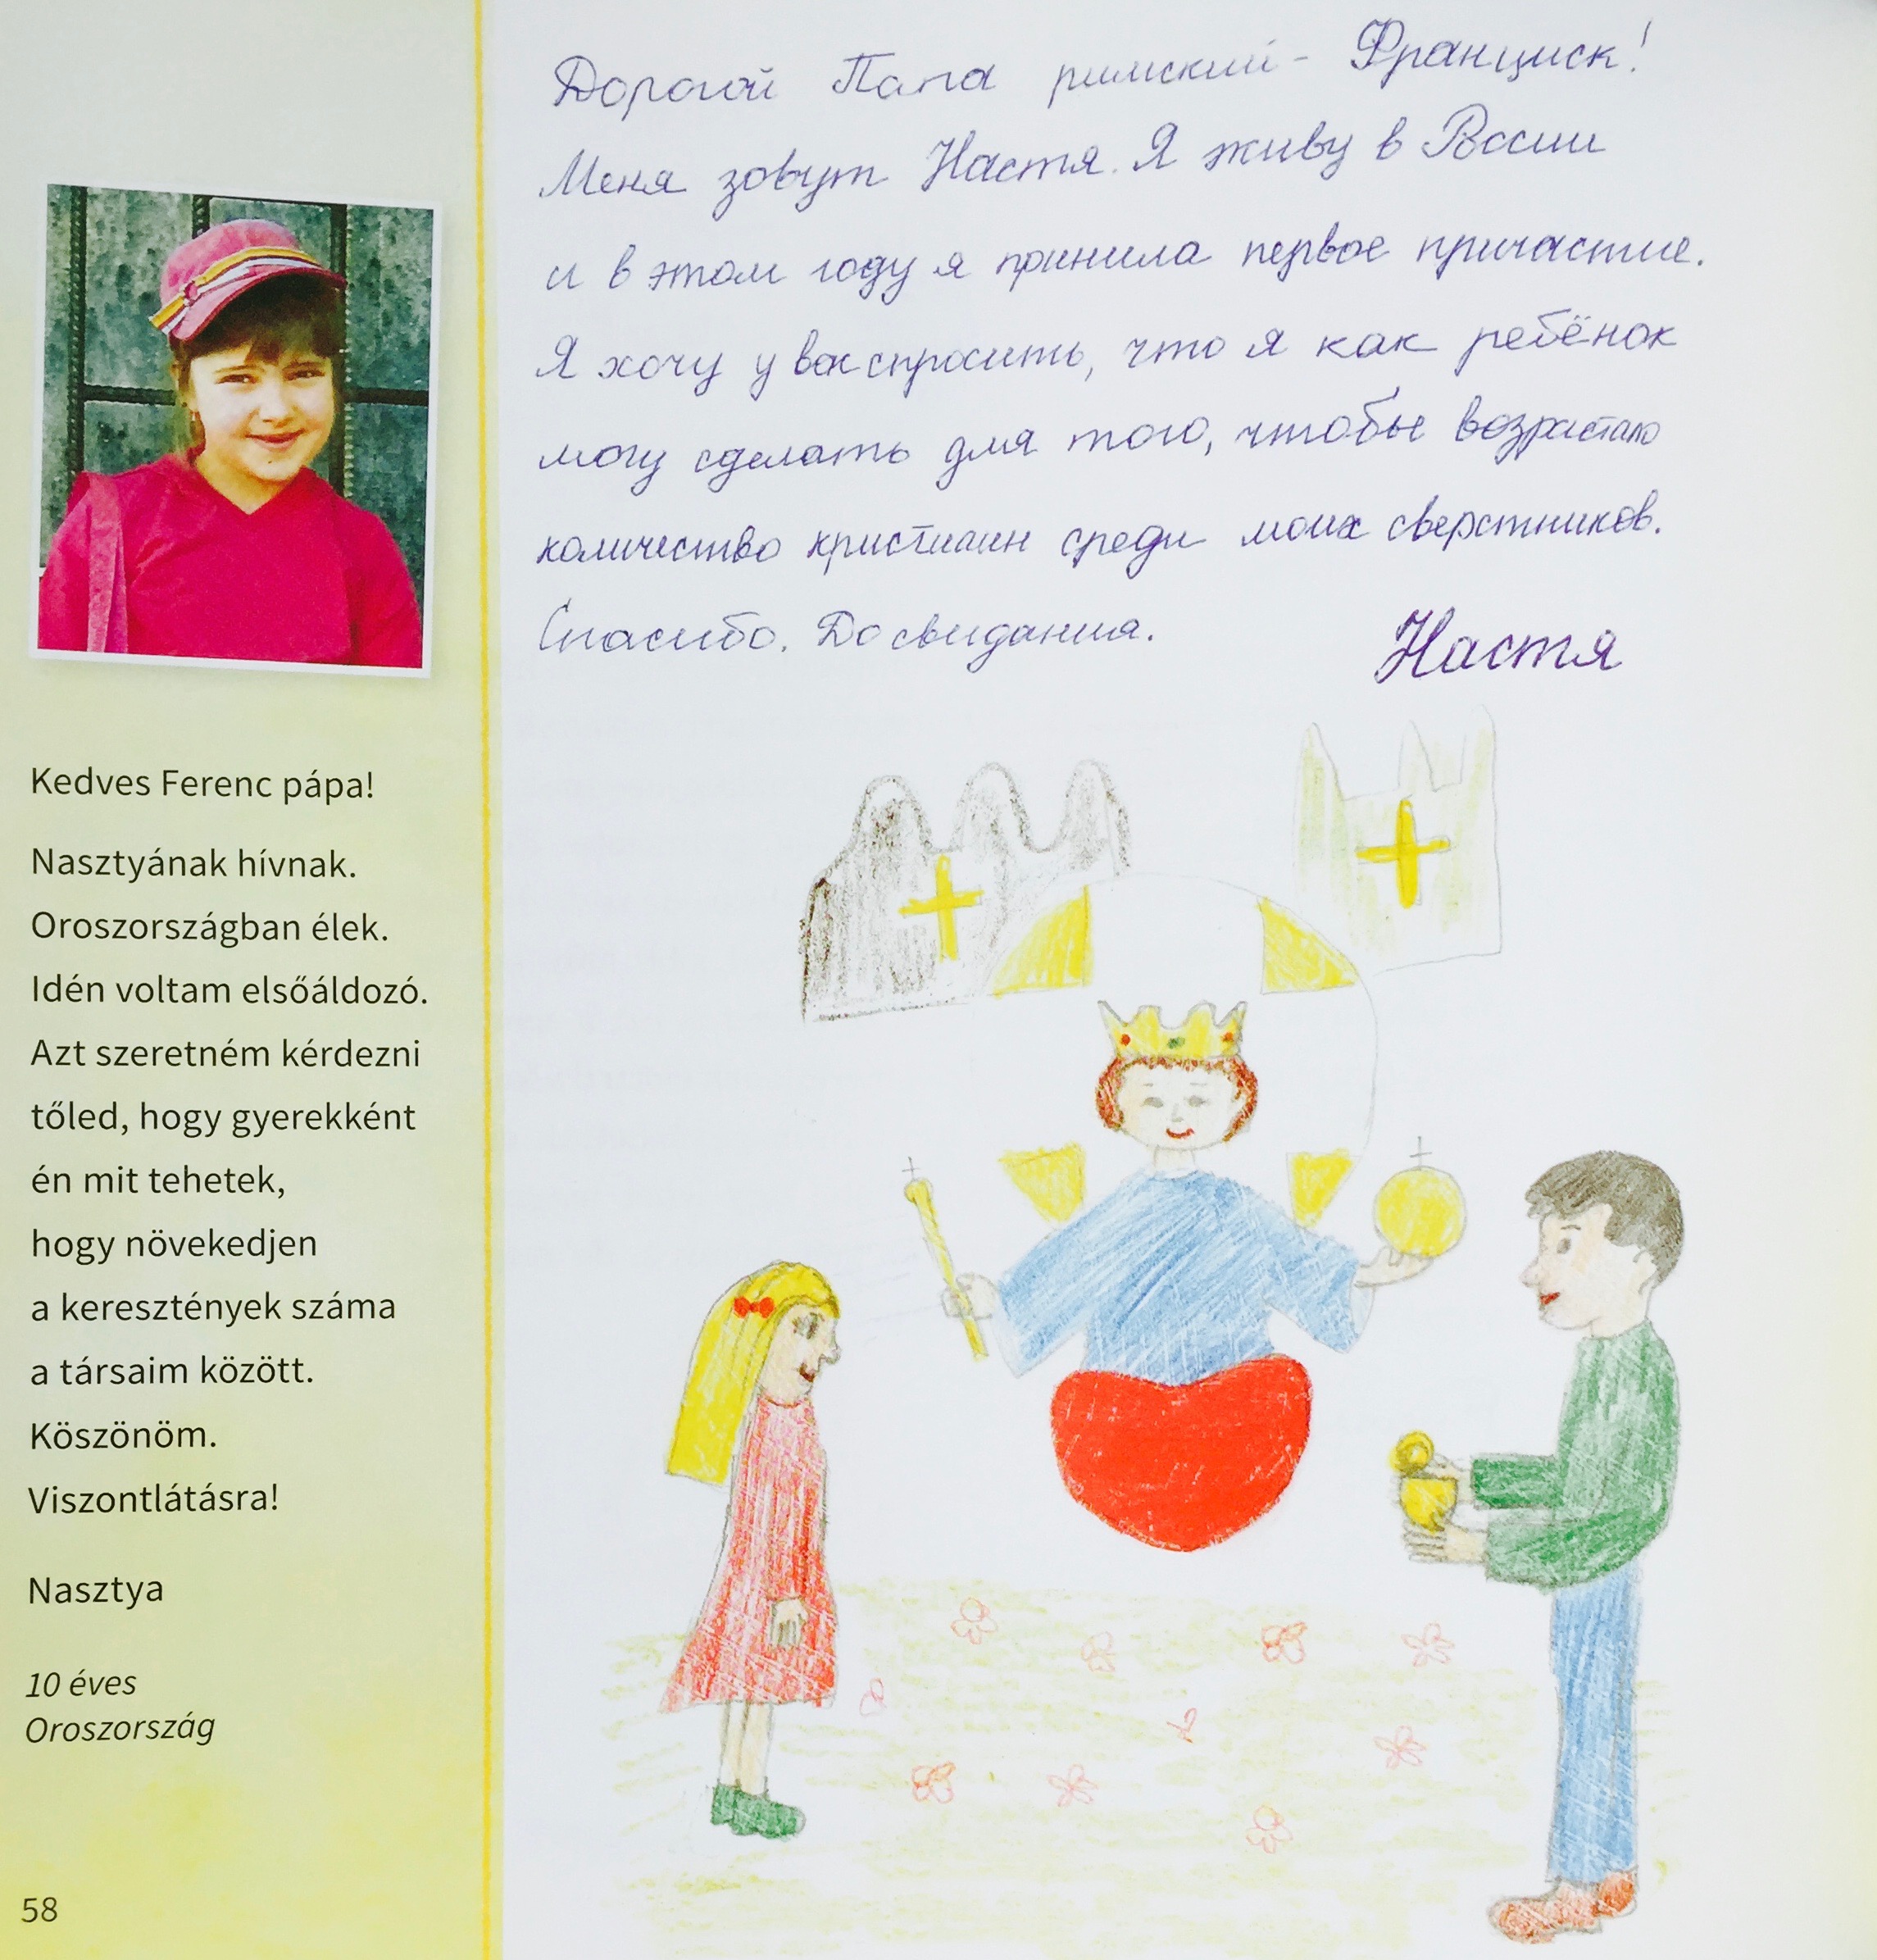 Дорогой Папа римский - Франциск!
Меня зовут Настя. Я живу в России
и в этом году я принила первое причастие.
Я хочу у вас спросить, что я как ребёнок
могу сделать для того, чтобы возрастало
количество христиан среди моих сверстников.
Спасибо. До свидания.
Настя
Kedves Ferenc pápa!
Nasztyának hívnak.
Oroszországban élek.
Idén voltam elsőáldozó.
Azt szeretném kérdezni
tőled, hogy gyerekként
én mit tehetek,
hogy növekedjen
a keresztények száma
a társaim között.
Köszönöm.
Viszontlátásra!
Nasztya
10 éves
Oroszország
58